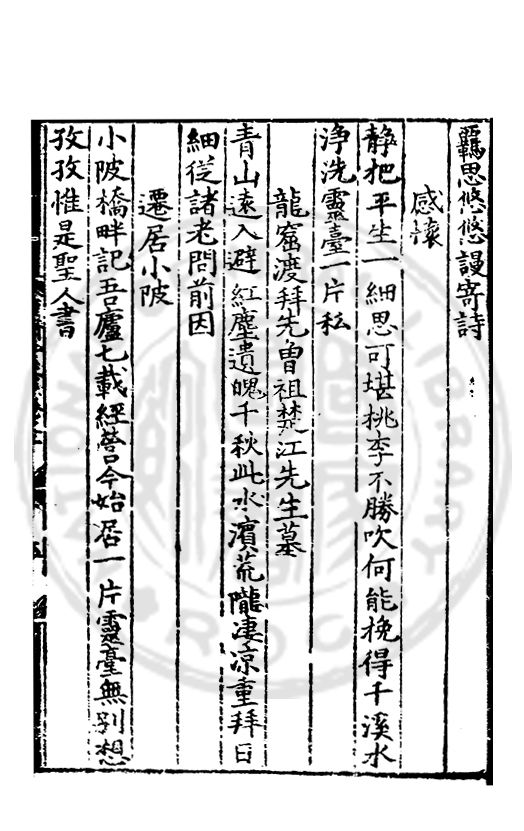 羈思悠悠謾寄詩
感懷
靜把平生一細思可堪桃李不勝吹何能挽得千溪水
淨洗靈臺一片私
龍窟渡拜先曾祖楚江先生墓
青山遠入避紅塵遺魄千秋此水濱荒隴凄凉重拜日
細從諸老問前因
遷居小陂
小陂橋畔記吾廬七載經營今始居一片靈臺無别想
孜孜惟是聖人書